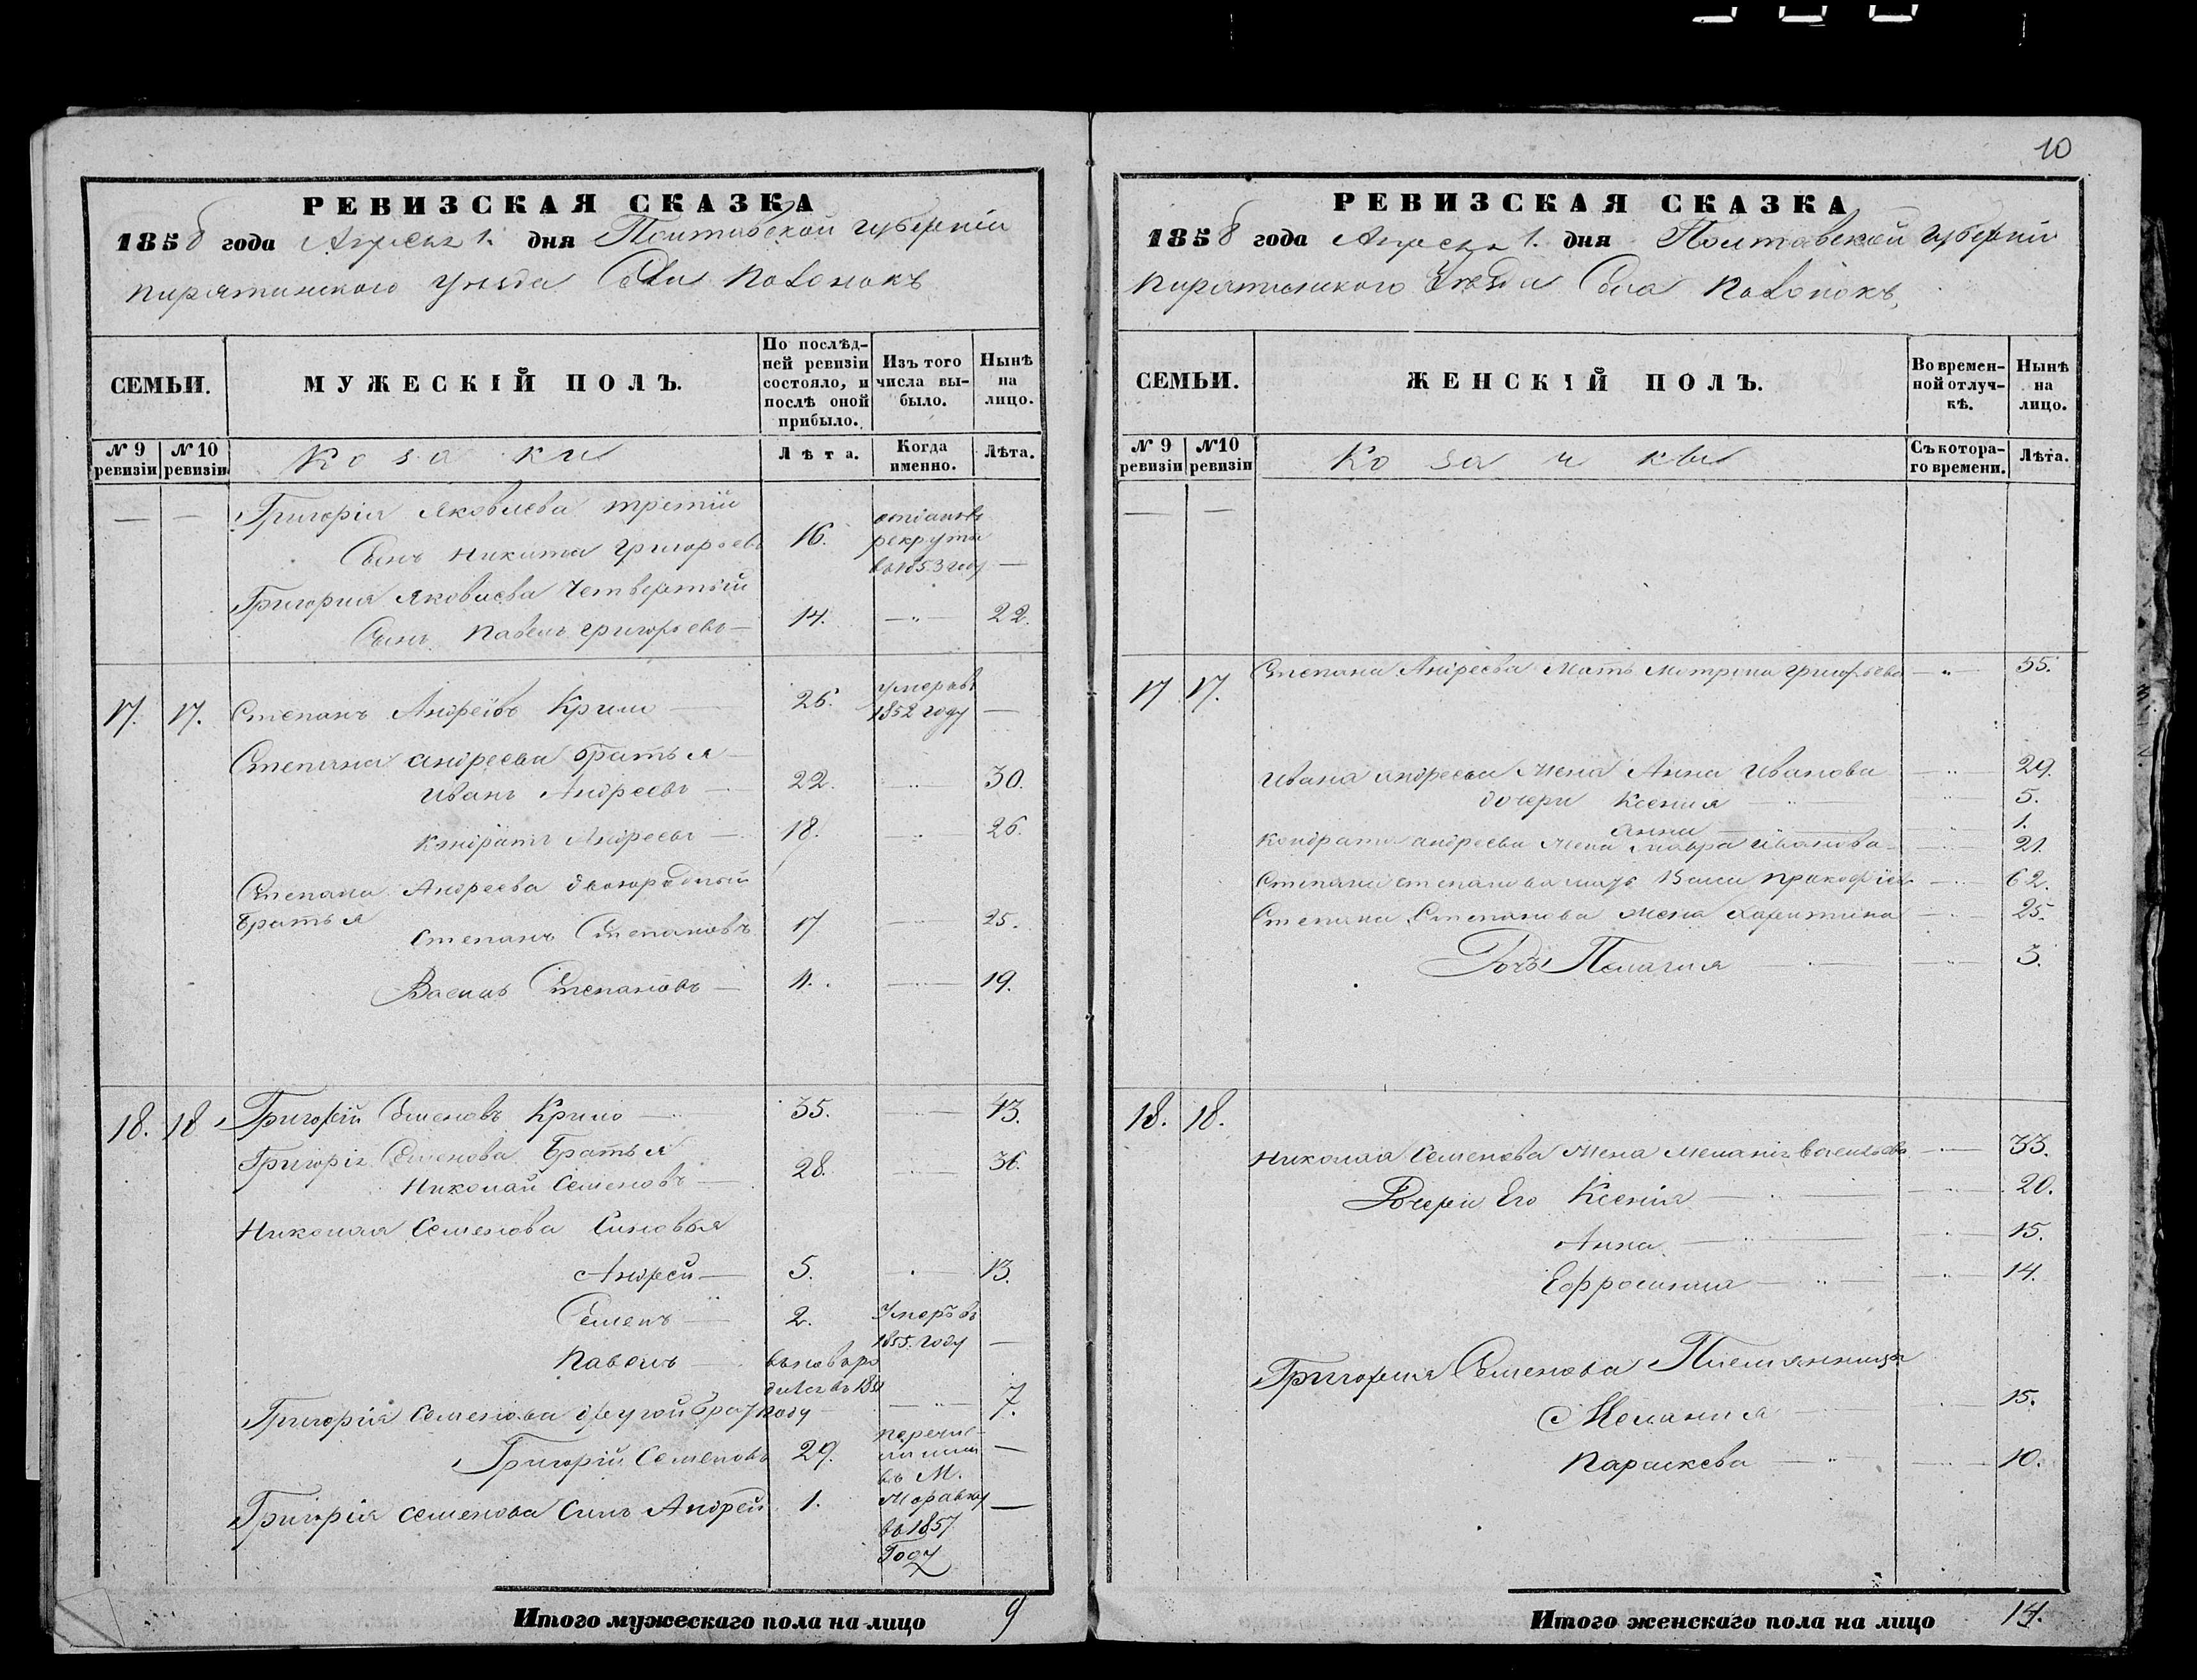 10
РЕВИЗСКАЯ СКАЗКА
1858 года Апреля 1. дня Полтавской губерніи
Пирятинского уезда Села
СЕМЬИ.
МУЖЕСКІЙ ПОЛЪ.
По послѣд-
ней ревизіи
состояло, и
послѣ оной
прибыло.
Изъ того
числа вы-
было.
Нынѣ
на
лицо.
№ 9
ревизіи
№ 10
ревизіи
Козаки
Лѣта.
Когда
именно.
Лѣта.
— — Григорія Яковлева третій
Сынъ Никита Григорьевъ 16. рекруты
во 1853 году —
Григория Яковлева Четвертый
Сынъ Павелъ Григорьевъ — 14. — 22.
17. 17. Степанъ Андреевъ Крим — 26. умеръ въ
1852 году —
Степана Андреева братья —
Иванъ Андреевъ — 22. — 30.
Кондратъ Андреевъ — 18. — 26.
Степана Андреева двоюродный
братья
Степанъ Степановъ 17 — 25.
Василь Степановъ — 11. — 19.
18. 18 Григорій Семеновъ Крим — 35. — 43.
Григорія Семенова Братья
Николай Семеновъ — 28. — 36.
Николая Семенова Синовья
Андрей — 5. — 13.
Семенъ — 2. Умеръ въ
1855. году —
Павелъ —
Григорія Семенова другой году — — 7.
Григорій Семеновъ 29. перечис-
въ М. —
Григорія Семенова Синъ Андрей 1. —
во 1857
Году
Итого мужескаго пола на лицо 9
РЕВИЗСКАЯ СКАЗКА
1858 года Апреля 1. дня Полтавской Губерніи
Пирятинского Уезда Села
СЕМЬИ.
ЖЕНСКІЙ ПОЛЪ.
Во времен-
ной отлуч-
кѣ.
Нынѣ
на
лицо.
№ 9
ревизіи
№10
ревизіи
Козачки
Съ котора-
го времени.
Лѣта.
— —
17 17. Степана Андреева Мать Мотрона Григорьева — 55.
Ивана Андреева Жена Анна Иванова — 29.
дочери Ксения — 5.
Анна — 1.
Кондрата Андреева Жена Мавра Иванова — 21.
Степана Степанова — 62.
Степана Степанова жена Харитина — 25.
Дочь Пелагия — 3.
18. 18.
Николая Семенова Жена Меланія Васильева — 33.
Дочери Его Ксенія — 20.
Анна — 15.
Ефросиния — 14.
Григория Семенова Племянницы
Мелания — 15.
Параскева — 10.
Итого женскаго пола на лицо 14.